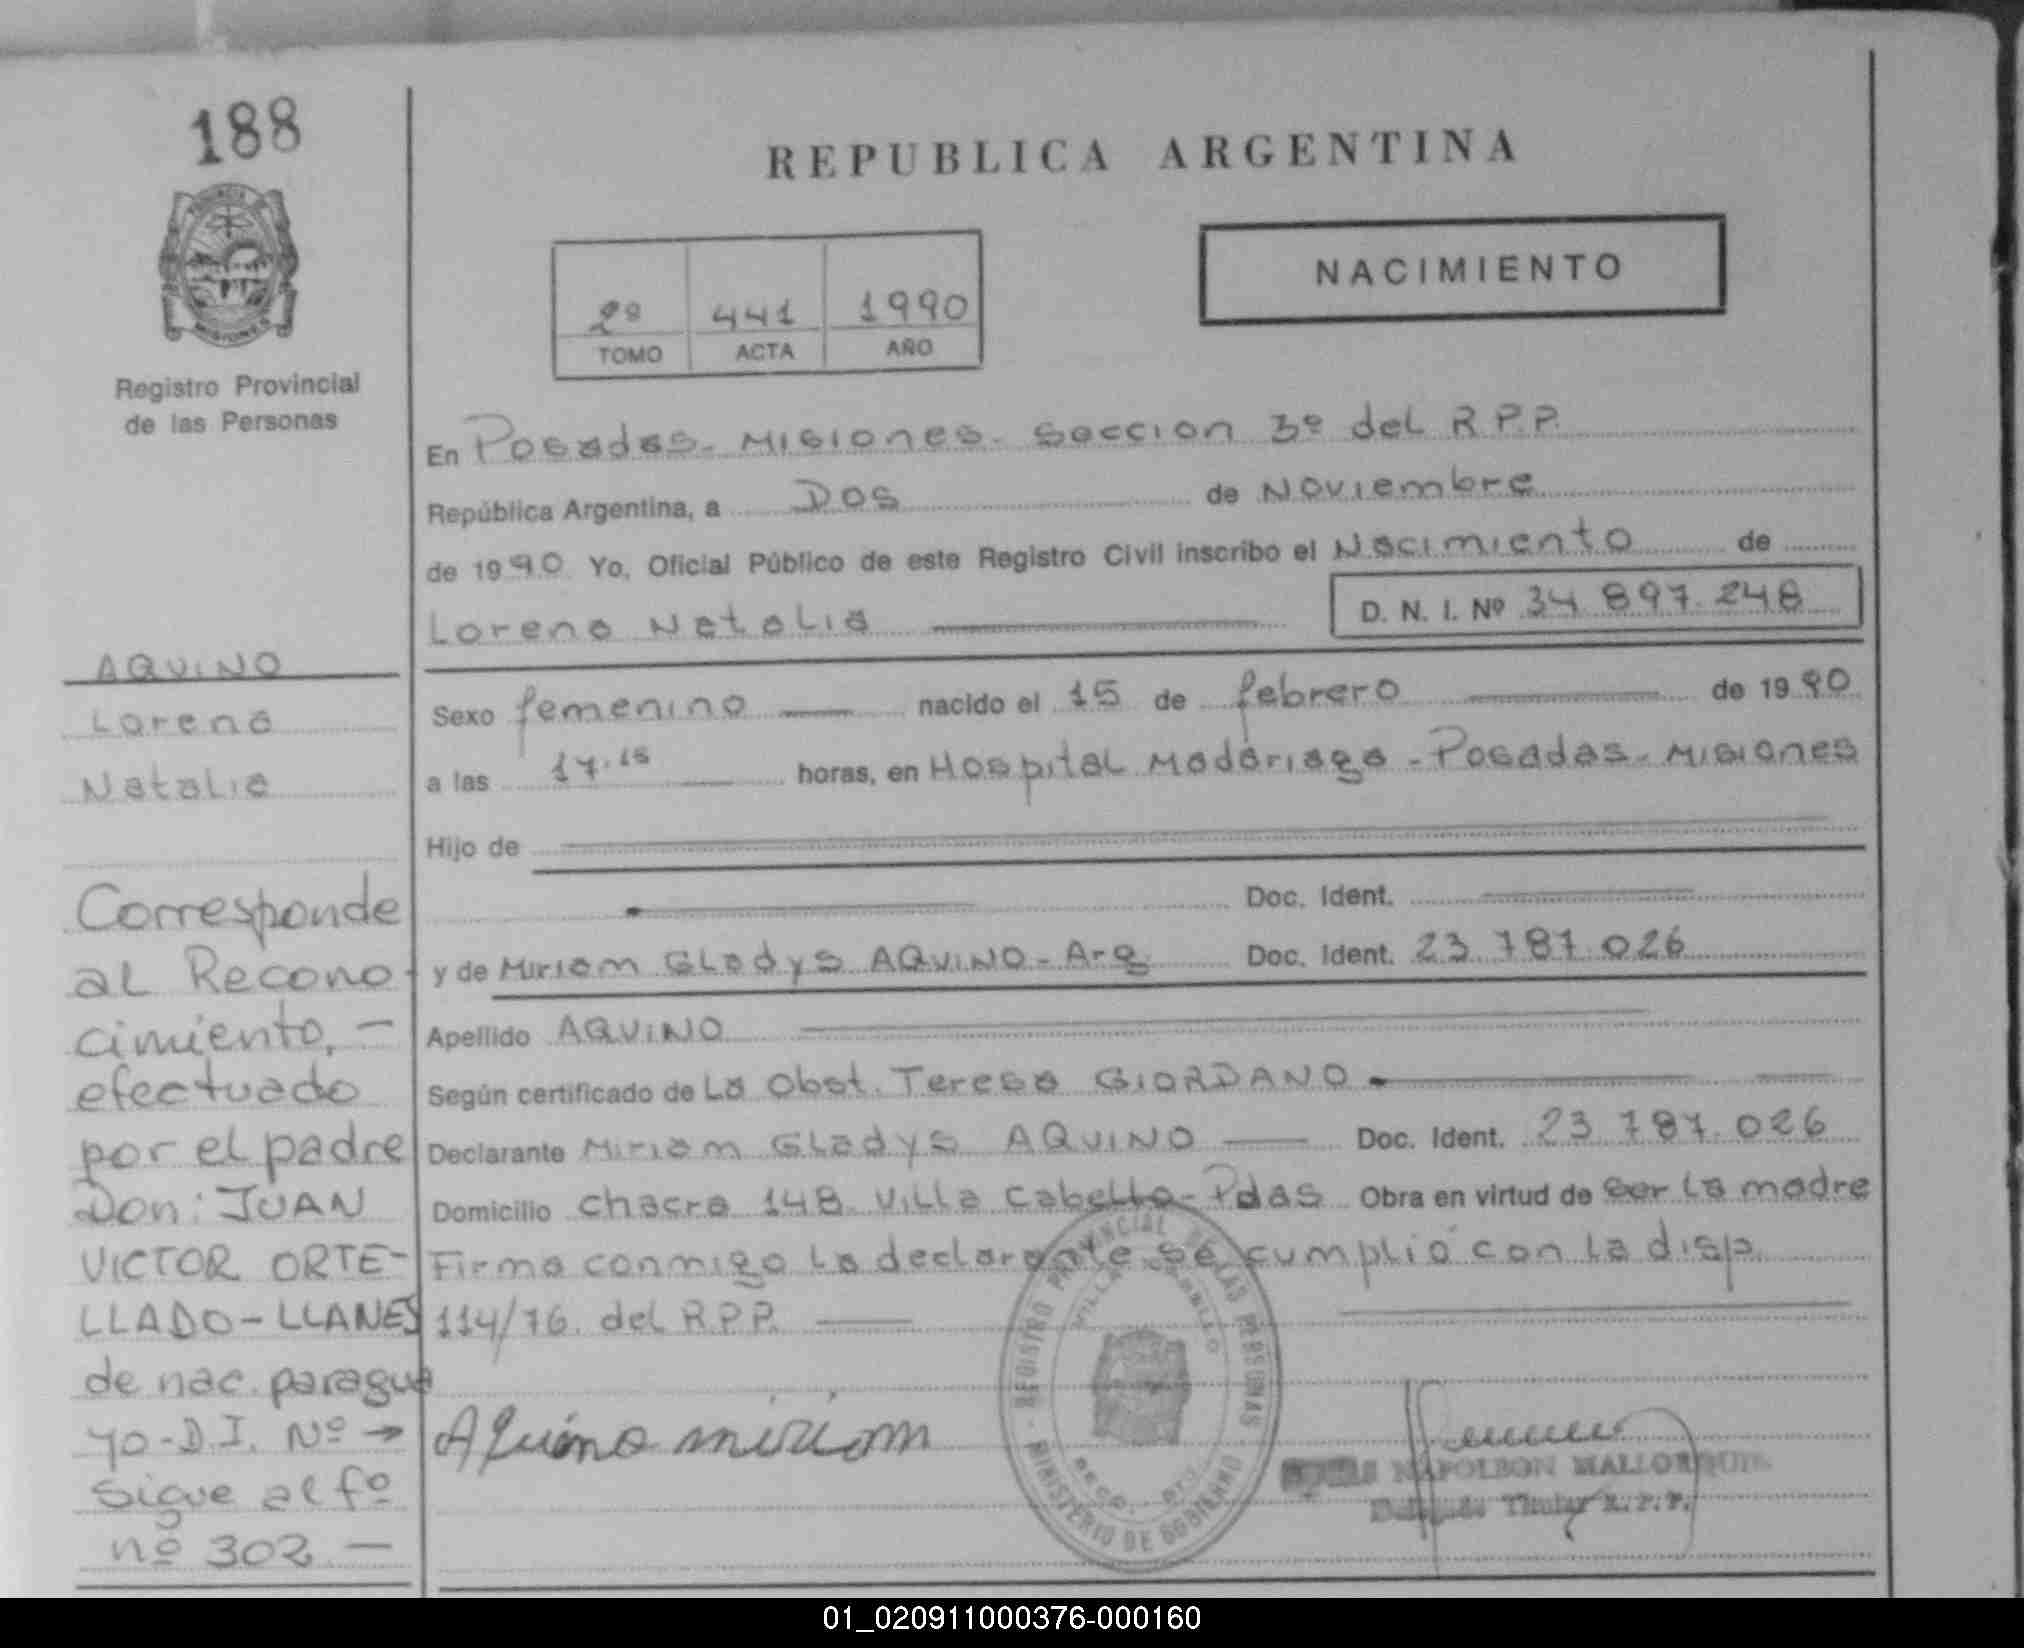 188
REPUBLICA ARGENTINA
NACIMIENTO
2º 441 1990
TOMO ACTA AÑO
MISIONES
Registro Provincial
de las Personas
En Posadas - Misiones - Seccion 3º del R.P.P.
República Argentina, a Dos de Noviembre
de 1990 Yo, Oficial Público de este Registro Civil inscribo el Nacimiento de
Lorena Natalia D. N. I. Nº 34.897.248
AQUINO
Lorena
Natalia
Sexo femenino nacido el 15 de febrero de 1990
a las 17.15 horas, en Hospital Madariaga - Posadas - Misiones
Hijo de
Doc. Ident.
y de Miriam Gladys AQUINO - Arg Doc. Ident. 23.787.026
Apellido AQUINO
Según certificado de La Obst. Teresa GIORDANO
Declarante Miriam Gladys AQUINO Doc. Ident. 23.787.026
Domicilio Chacra 148 Villa Cabello - Pdas Obra en virtud de ser la madre
Firma conmigo la declarante se cumplió con la disp.
114/76 del R.P.P.
Corresponde
al Recono-
cimiento, -
efectuado
por el padre
Don: JUAN
VICTOR ORTE-
LLADO - LLANES
de nac. paragua
yo - D.I. Nº →
Sigue al fº
nº 302 -
Aquino miriam
REGISTRO PROVINCIAL DE LAS PERSONAS
VILLA CABELLO
MINISTERIO DE GOBIERNO
NAPOLEON MALLORQUIN
Delegado Titular R.P.P.
01_020911000376-000160